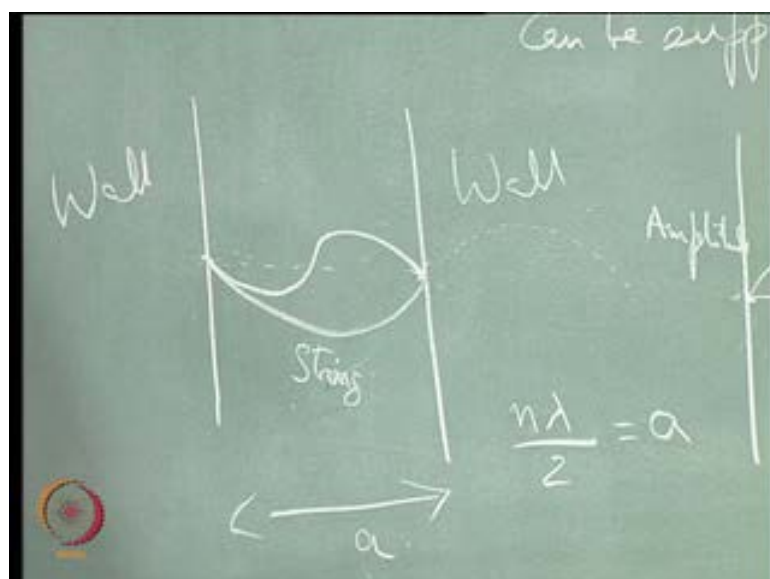 Can be supp
Wall
Wall
Amplitu
String
nλ/2 = a
a